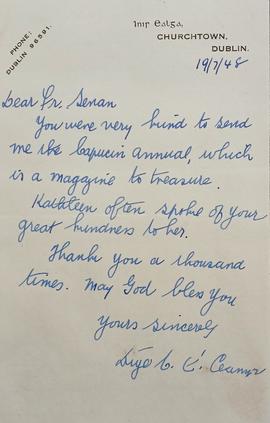 PHONE:
DUBLIN 96591.
Inip Ealga,
CHURCHTOWN,
DUBLIN.
19/7/48
Dear Fr. Senan
You were very kind to send
me the Capucin Annual, which
is a magazine to treasure.
Kathleen often spoke of your
great kindness to her.
Thank you a thousand
times. May God bless you
Yours sincerely